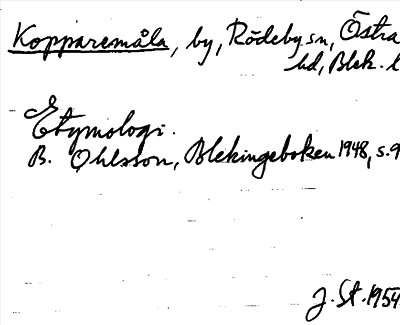 Kopparemåla, by, Rödeby sn, Östra
hd, Blek. l
Etymologi.
B. Ohlsson, Blekingeboken 1948, s. 9
J. St. 1954